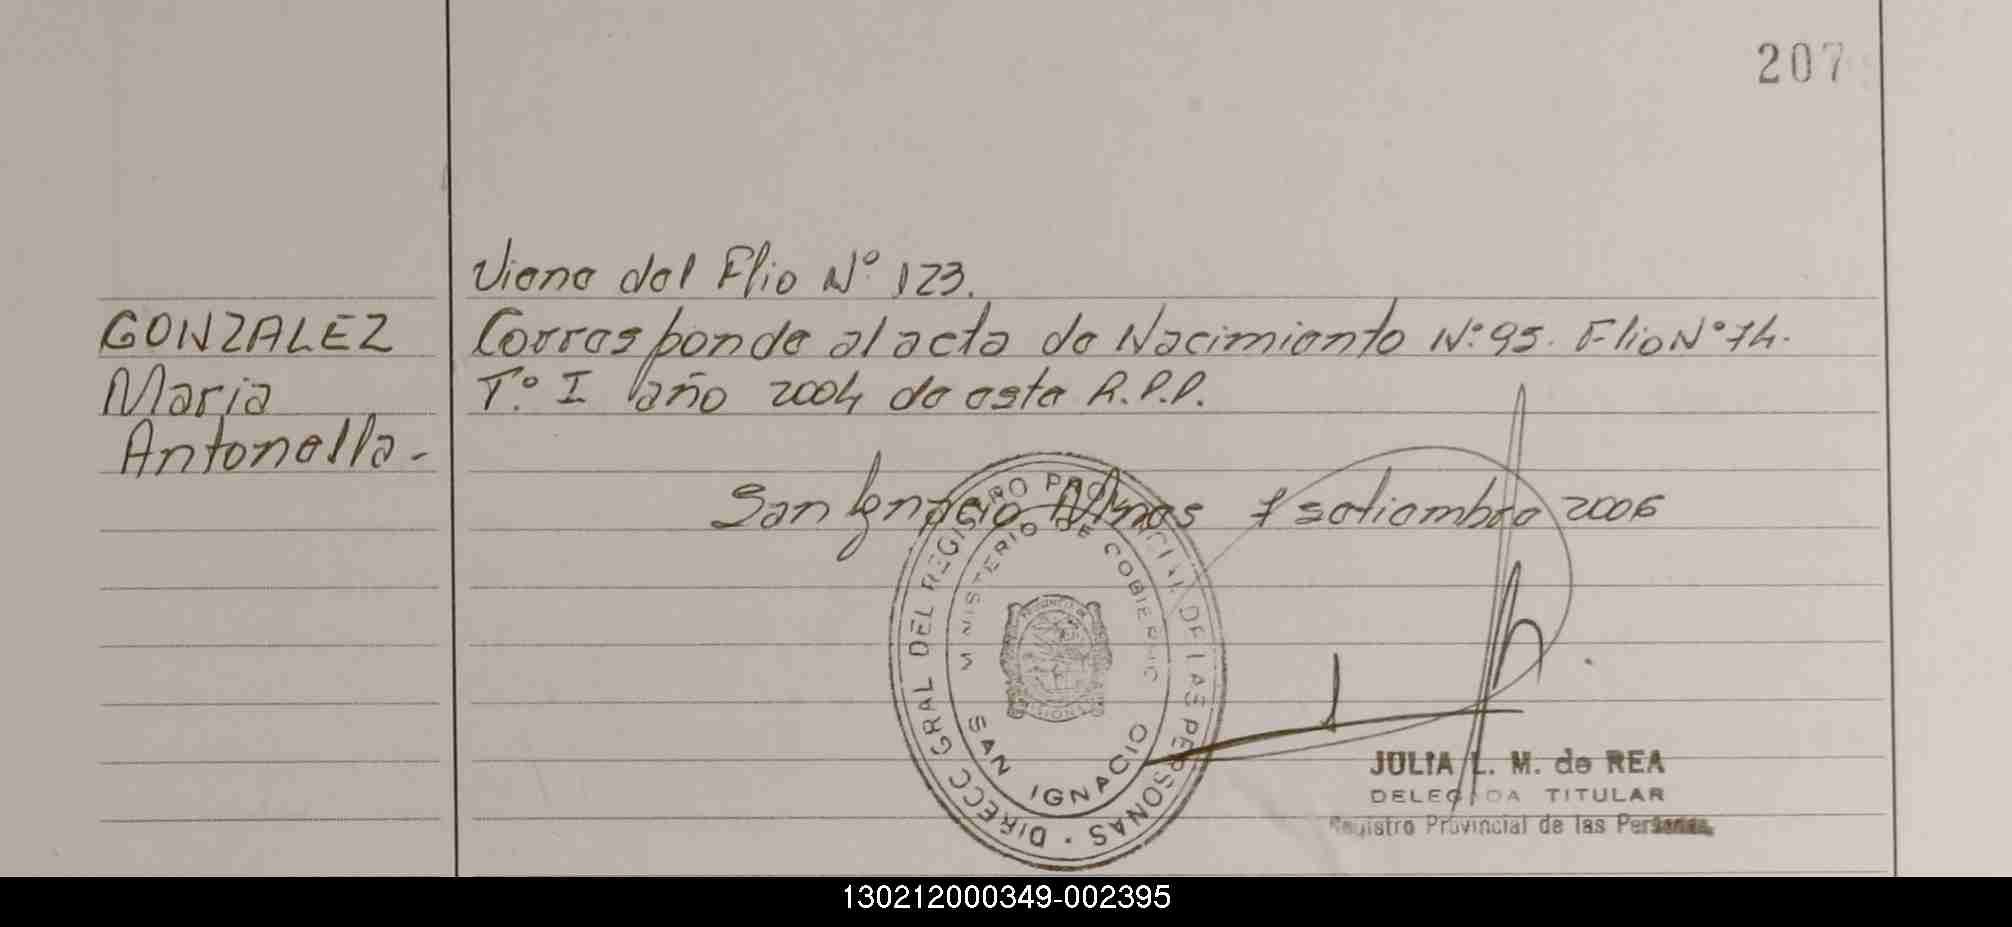 207
Viene del Flio Nº 123.
GONZALEZ
Maria
Antonella.-
Corresponde al acta de Nacimiento Nº 95. Flio Nº 74.
Tº. I año 2004 de este R.P.P.
San Ignacio Mnes 7 setiembre 2006
DIRECC GRAL DEL REGISTRO PROVINCIAL DE LAS PERSONAS
MINISTERIO DE GOBIERNO
PROVINCIA DE
MISIONES
SAN IGNACIO
JULIA L. M. de REA
DELEGADA TITULAR
Registro Provincial de las Personas
130212000349-002395